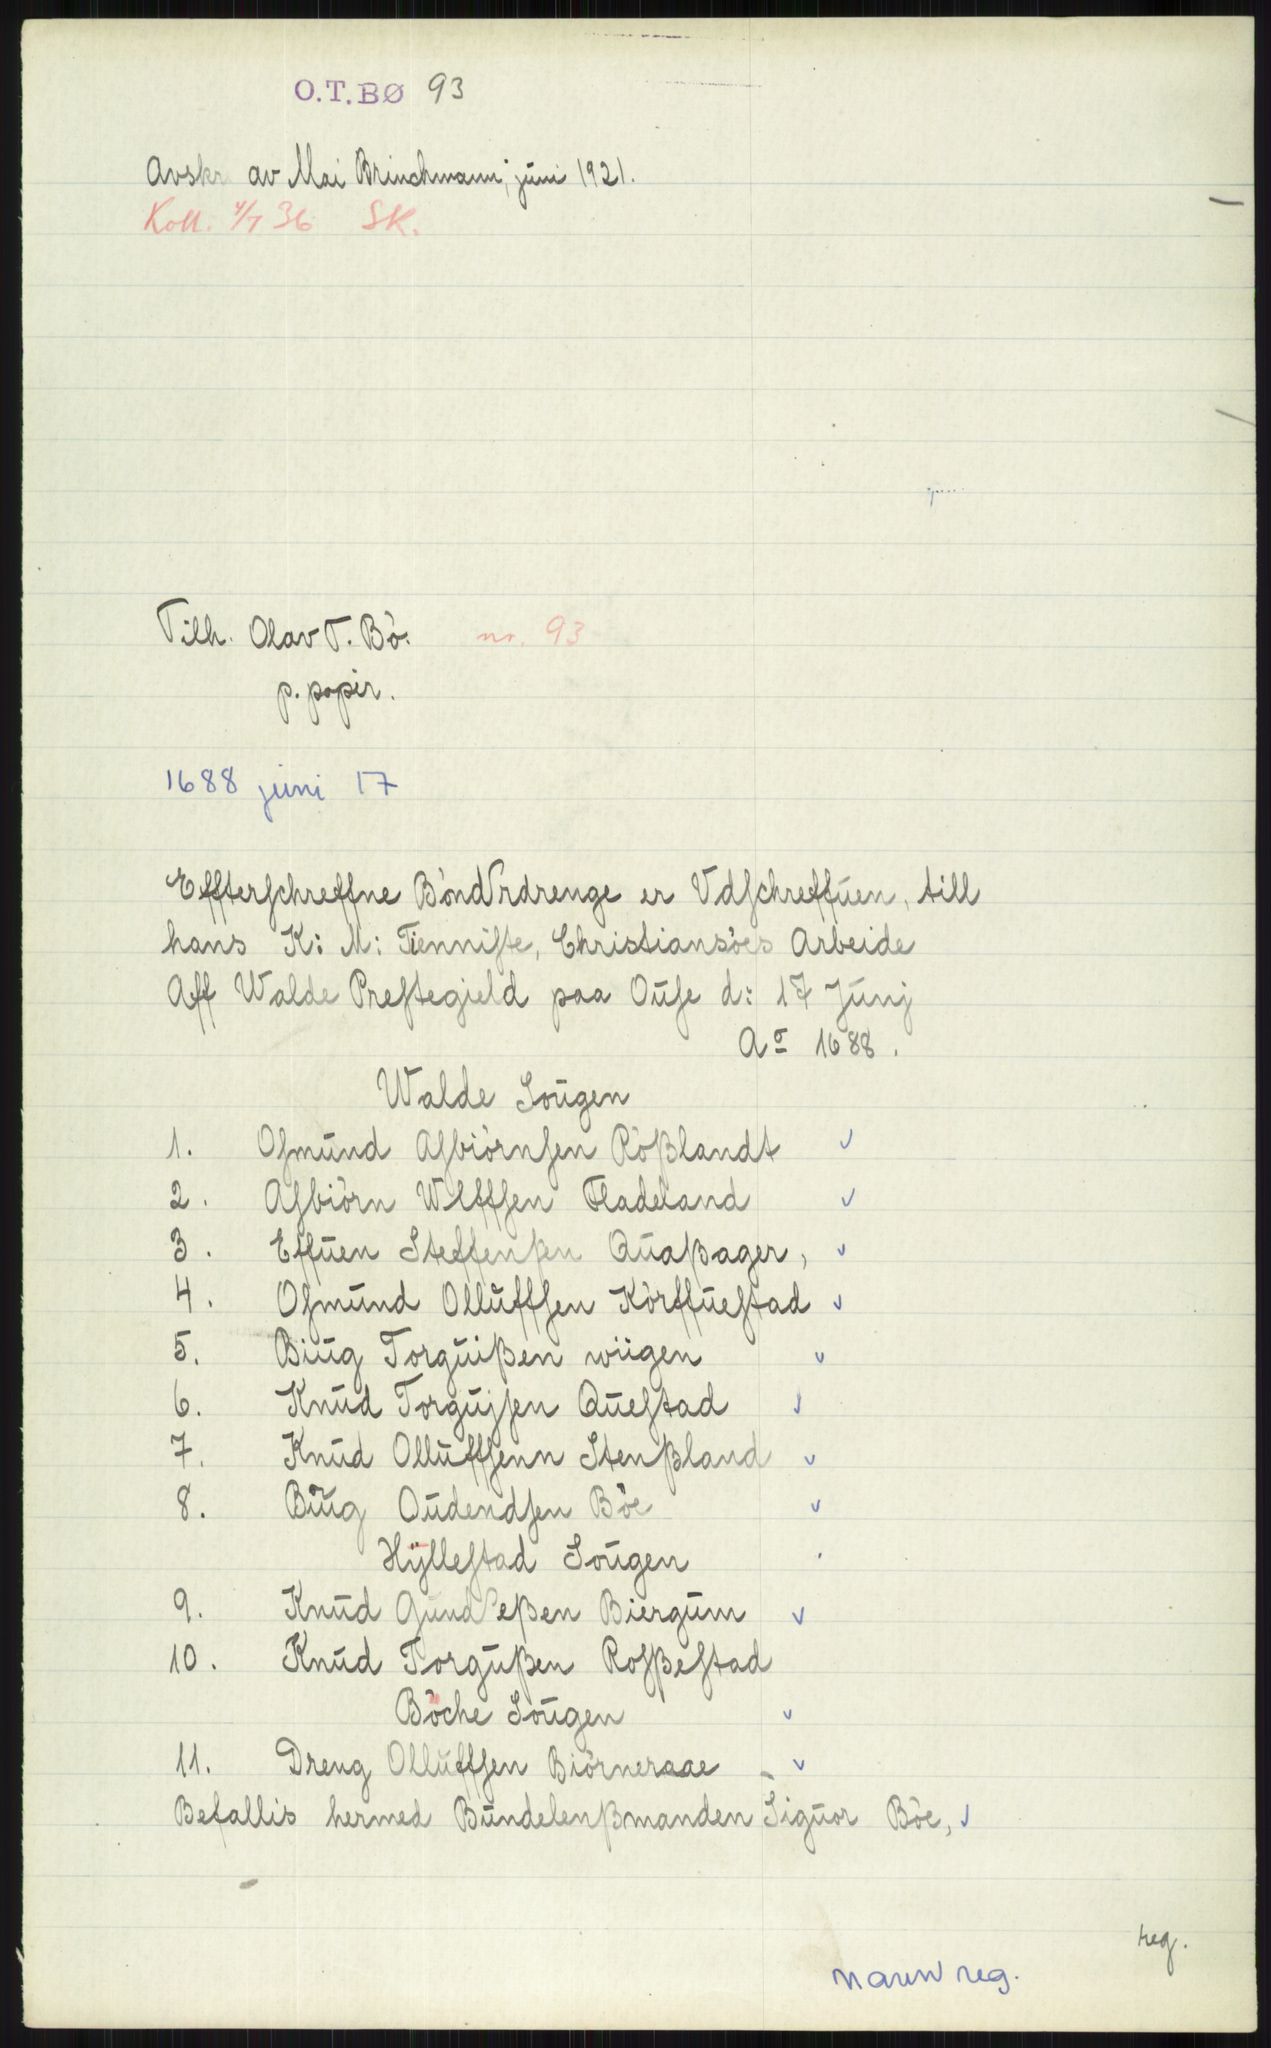 O.T.BØ 93
Avskr av Mai Brinchmann, juni 1921.
Koll. 4/7 36 SK.
Tilh. Olav T. Bö. nr. 93
p. papir.
1688 juni 17
Effterſchreffne Böndrdrenge er Vdſchreffuen, till
hans K: M: Tienniſte, Christiansöes Arbeide
Aff Walde Preſtegield paa Ouſe d: 17 Junj
Aº 1688.
Walde Sougen
1. Oſmund Aſbiörnſen Rößlandt
2. Aſbiörn Wlffſen Fladeland
3. Effuen Steffenßen Quaßager,
4. Oſmund Olluffſen Körffueſtad
5. Biug Torguißen wiigen
6. Knud Torgujſen Queſtad
7. Knud Olluffſenn Stenßland
8. Biug Oudendſen Böe
Hÿlleſtad Sougen
9. Knud Gundſeßen Biergum
10. Knud Torgußen Roſßeſtad
Böche Sougen
11. Dreng Olluffſen Biörneraae
Befallis hermed Bundelenßmanden Siguor Böe,
reg.
navnreg.